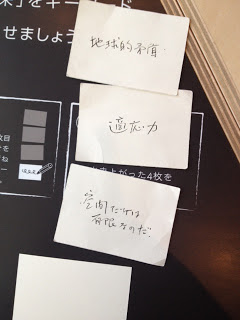 来」をキーワード
せましょう
地球的矛盾
適応力
枚目
上がった4枚を
空間だけは
有限なのだ!